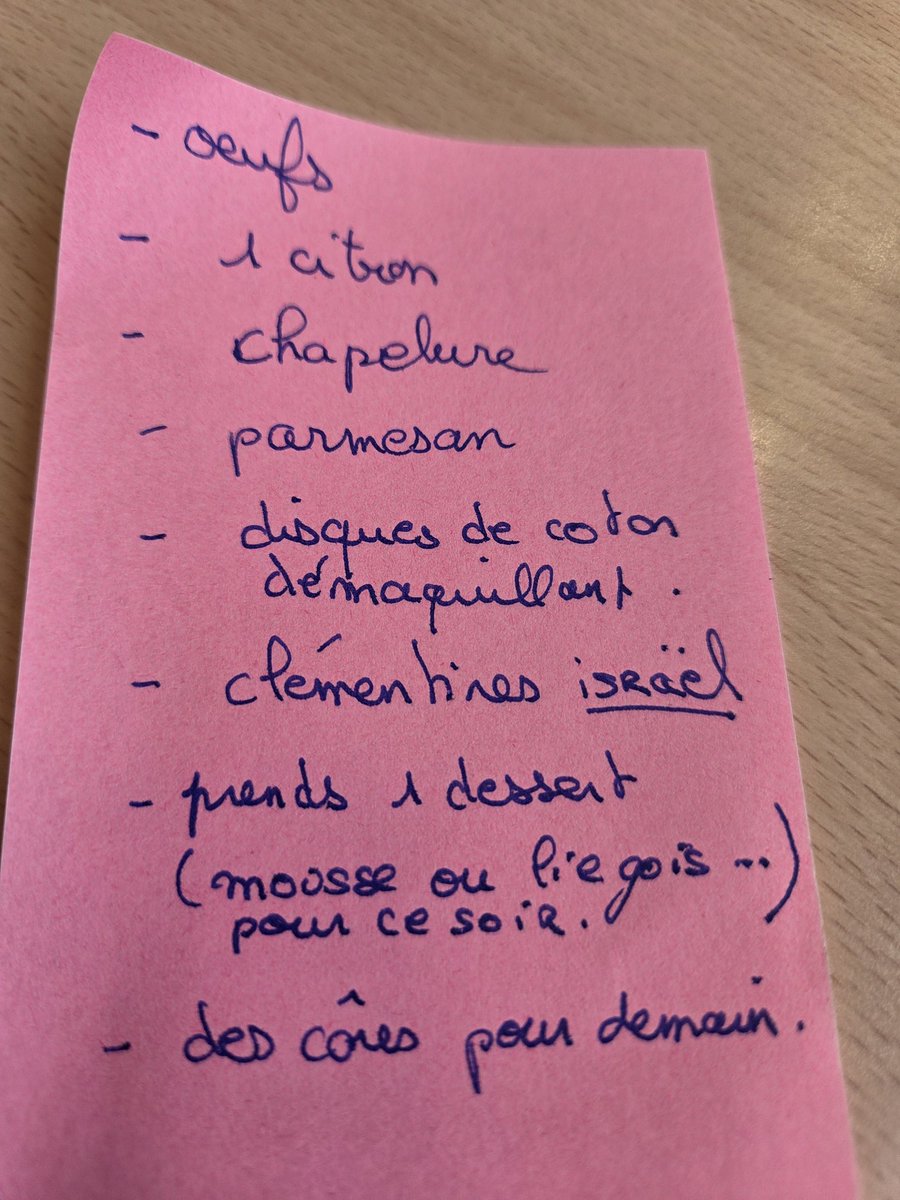 - oeufs
- 1 citron
- chapelure
- parmesan
- disques de coton
démaquillant.
- clémentines israël
- prends 1 dessert
(mousse ou liegois...)
pour ce soir.
- des cônes pour demain.